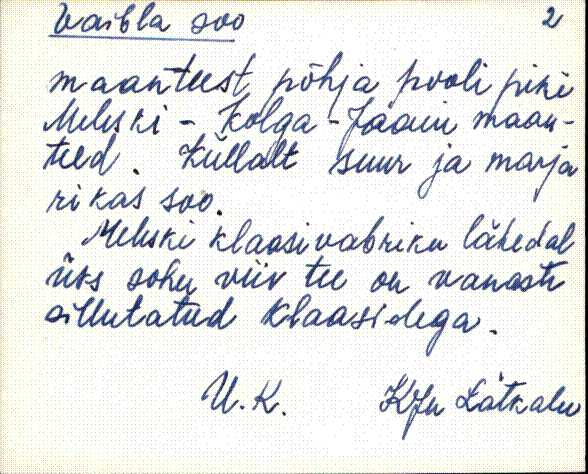 Vaibla soo 2
maanteest põhja pooli piki
Meleski - Kolga-Jaani maan-
teed. Küllalt suur ja marja
rikas soo.
Meleski klaasivabriku lähedal
üks sohu viiv tee on vanasti
sillutatud klaasidega.
U.K. Lätkalu